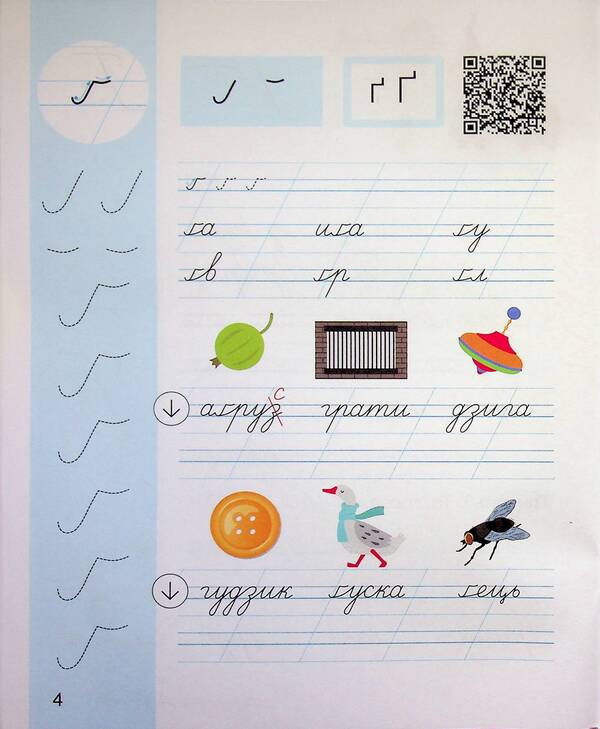 ґ
ґ Ґ
ґ ґ ґ
ґа иґа ґу
ґв ґр ґл
с
аґруз грати дзига
гудзик ґуска ґець
4